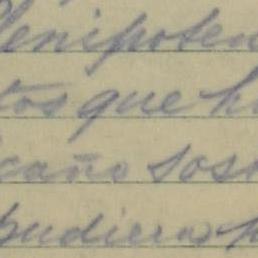 lenipoten
tos que h
cano sos
pudiera